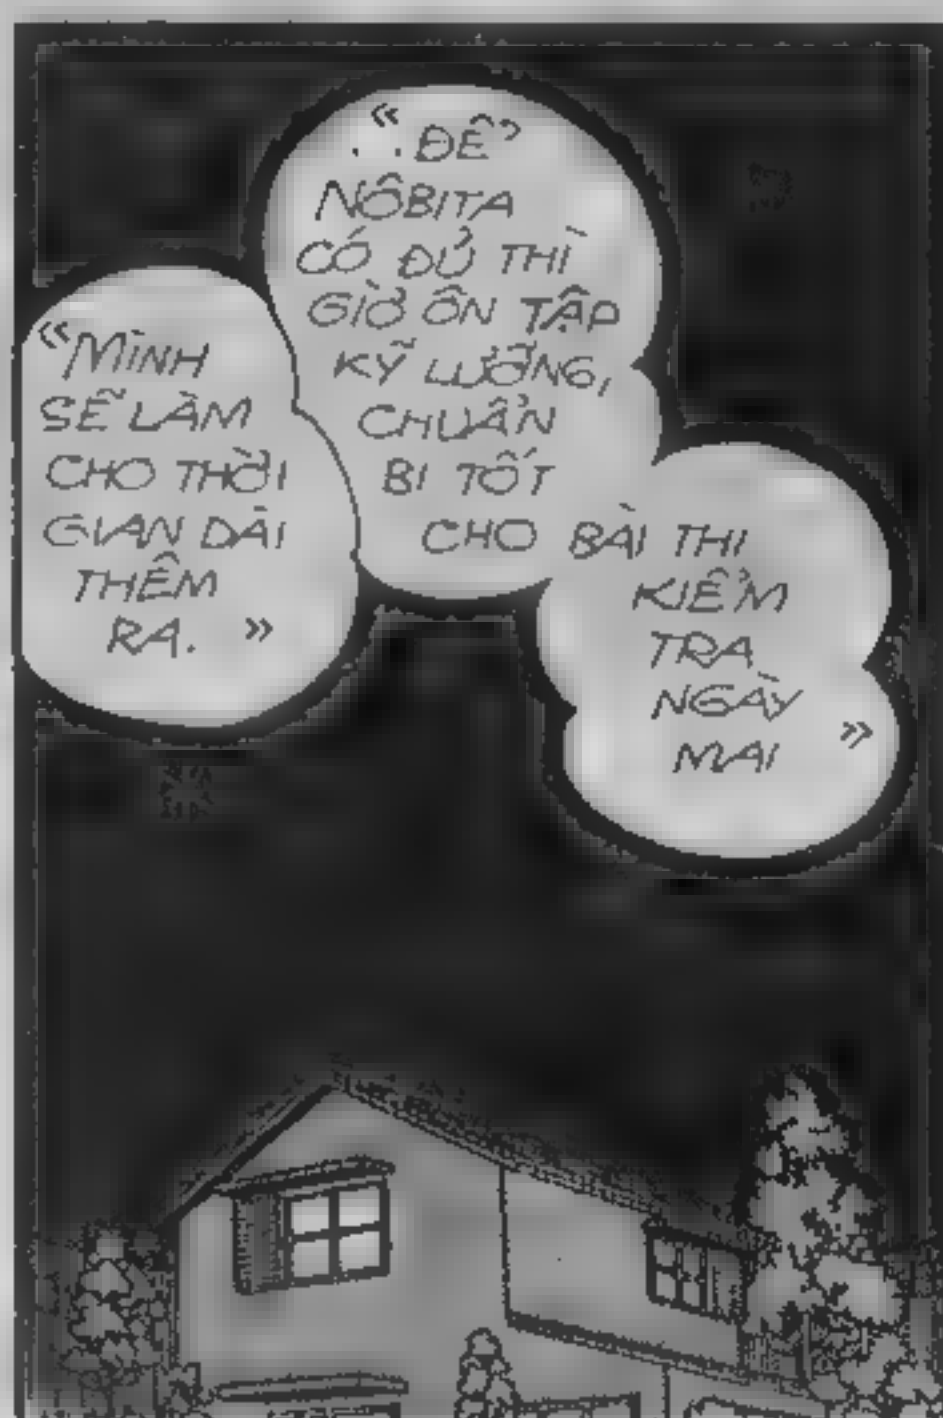 «MÌNH
SẼ LÀM
CHO THỜI
GIAN DÀI
THÊM
RA. »
«
. . ĐỂ
NÔBITA
CÓ ĐỦ THÌ
GIỜ ÔN TẬP
KỸ LƯỠNG,
CHUẨN
BI TỐT
CHO BÀI THI
KIỂM
TRA
NGÀY
MAI »